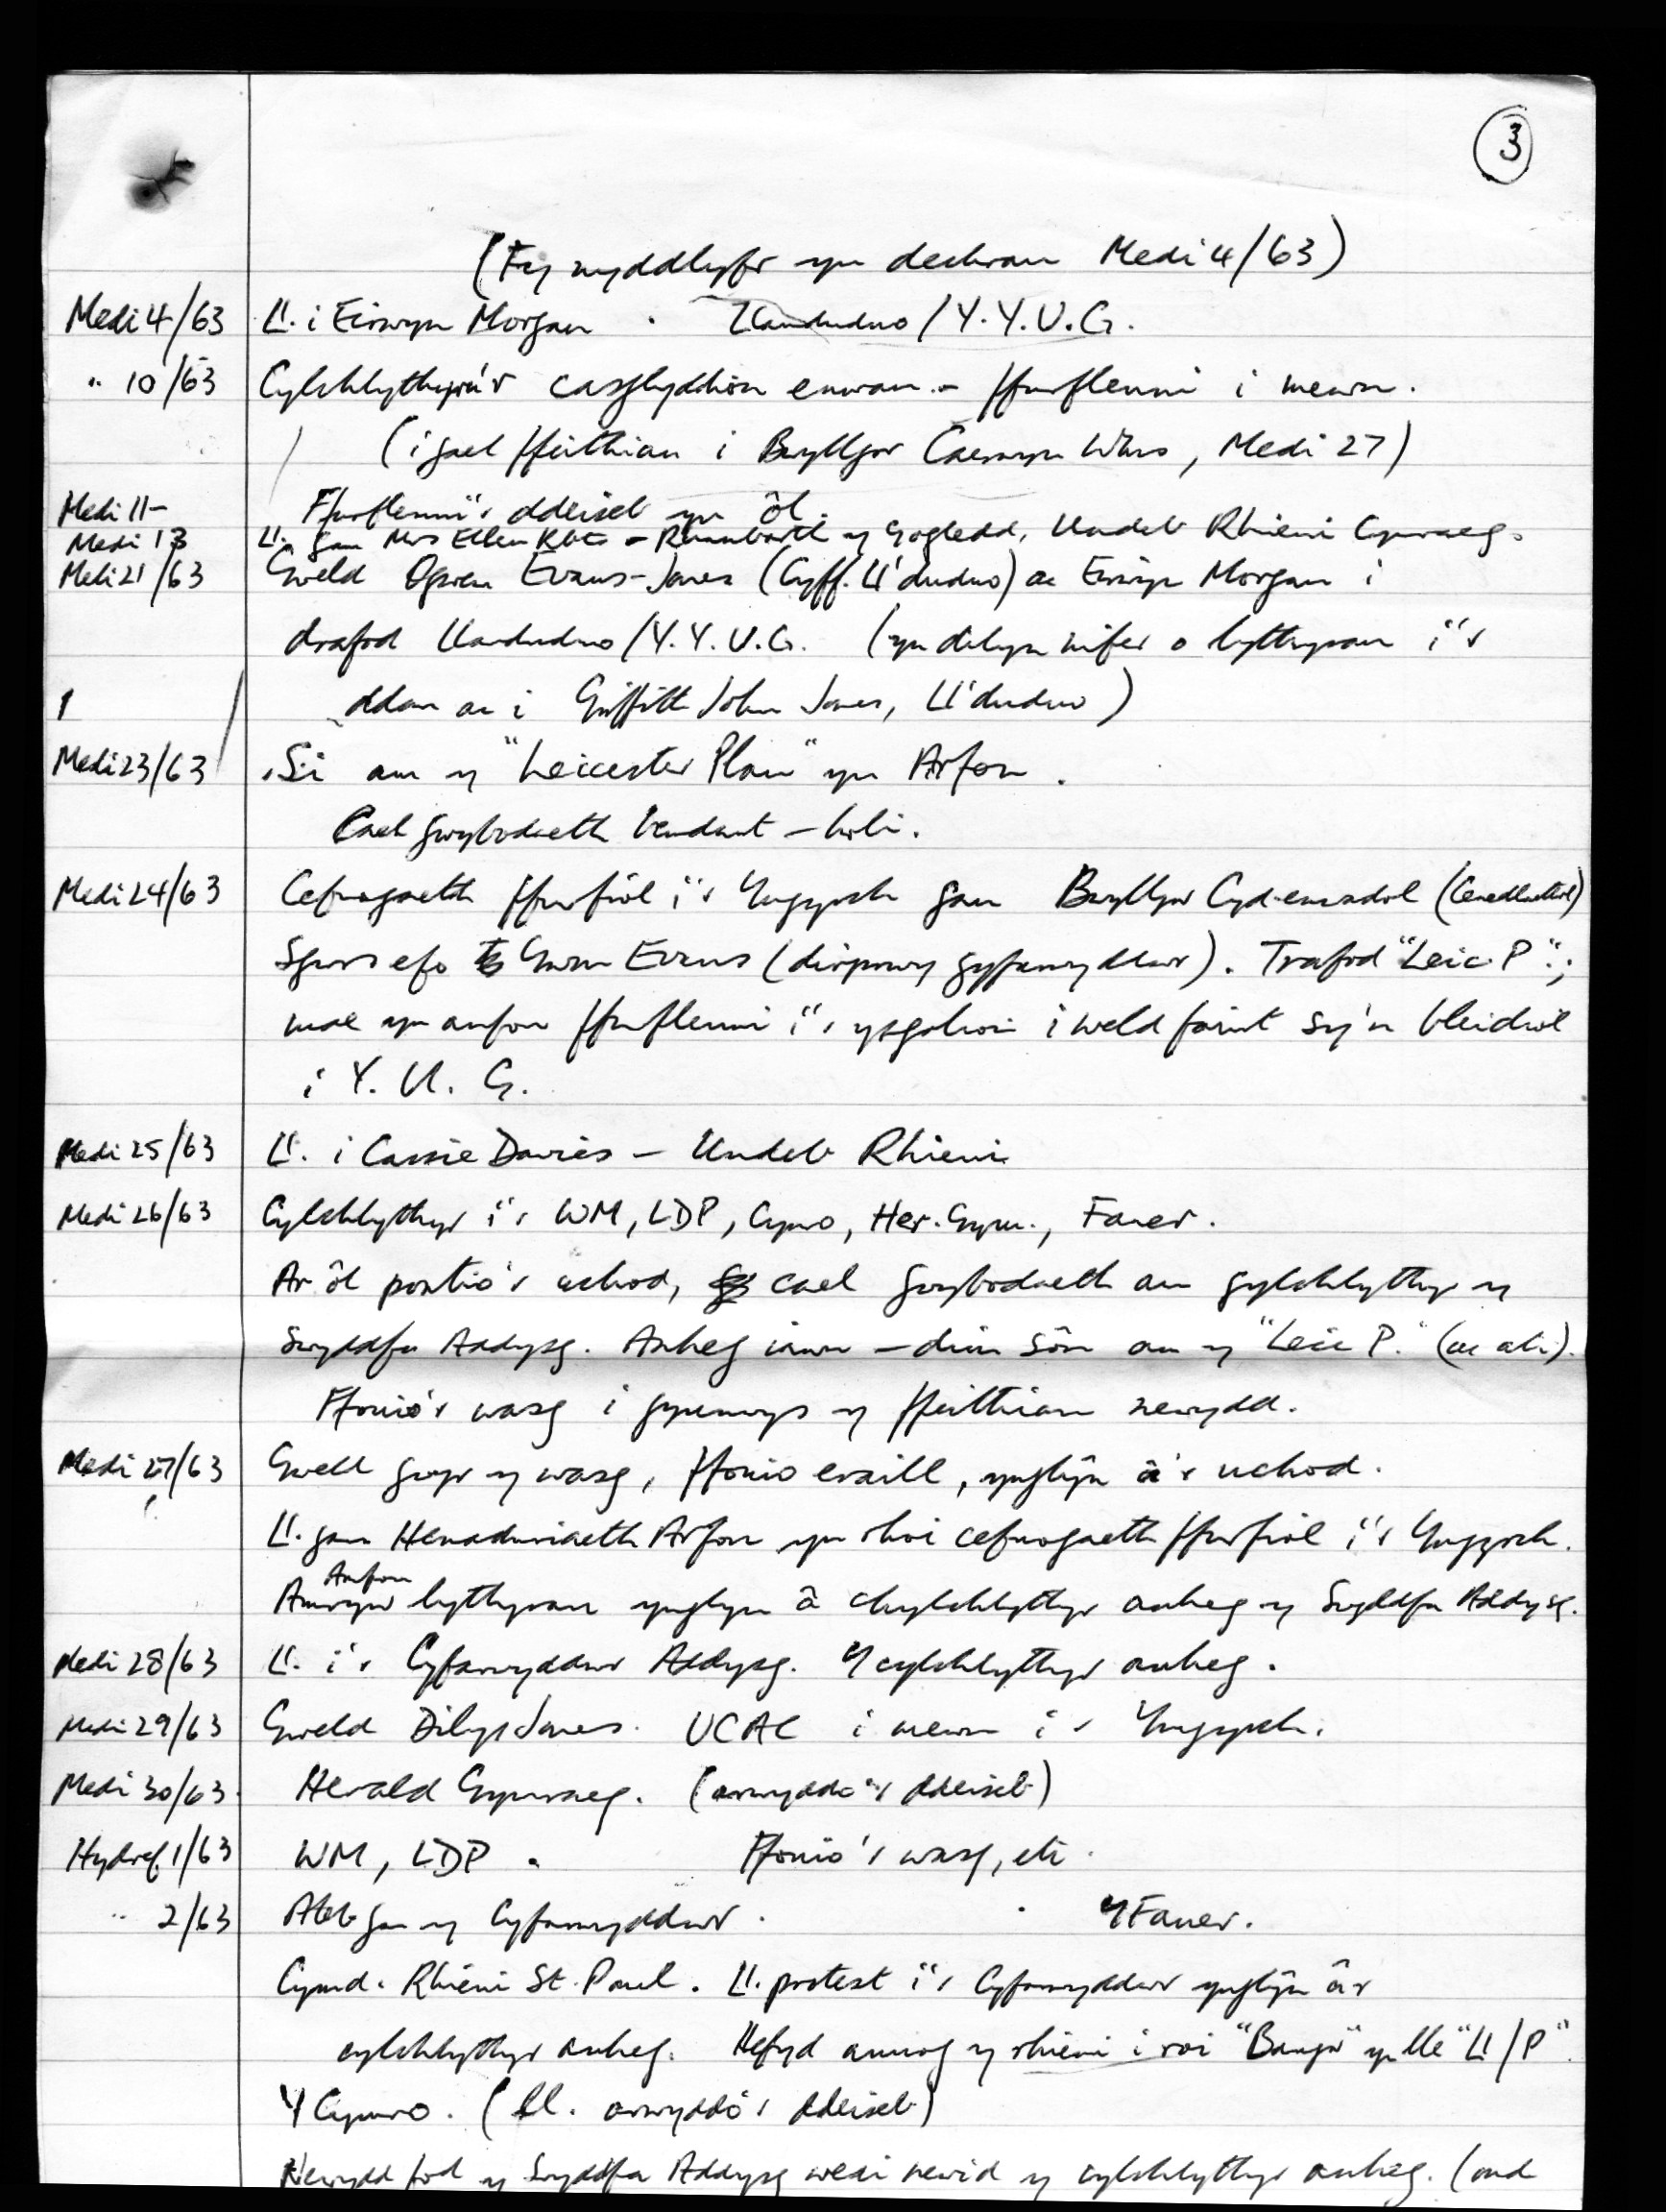 3
(Fy nyddlyfr yn dechrau Medi 4/63)
Medi 4/63 Ll. i Eirwyn Morgan . Llandudno / Y.Y.U.G.
" 10/63 Cylchlythyru'r casglyddion enwau - ffurflenni i mewn.
(i gael ffeithiau i Bwyllgor Caernarfon, Medi 27)
Medi 11- Ffurflenni'r ddeiseb yn ôl.
Medi 13 Ll. gan Mrs Ellen - Rhanbarth y Gogledd, Undeb Rhieni Cymraeg.
Medi 21/63 Gweld Ogwen Evans-Jones (Cyff. Ll'dudno) ac Eirwyn Morgan i
drafod Llandudno / Y.Y.U.G. (yn dilyn nifer o lythyrau i'r
ddau ac i Griffith John Jones, Ll'dudno)
Medi 23/63 Si am y "Leicester Plan" yn Arfon.
Cael gwybodaeth bendant - holi.
Medi 24/63 Cefnogaeth ffurfiol i'r Ymgyrch gan Bwyllgor Cyd-enwadol (Cenedlaethol)
Sgwrs efo Gwm Evans (dirprwy gyfarwyddwr). Trafod "Leic. P.";
mae yn anfon ffurflenni i'r ysgolion i weld faint sy'n bleidiol
i Y. U. G.
Medi 25/63 Ll. i Cassie Davies - Undeb Rhieni
Medi 26/63 Cylchlythyr i'r WM, LDP, Cymro, Her. Gym., Faner.
Ar ôl postio'r uchod, cael gwybodaeth am gylchlythyr y
Swyddfa Addysg. Anheg iawn - dim sôn am y "Leic P." (ac ati).
Ffonio'r wasg i gynnwys y ffeithiau newydd.
Medi 27/63 Gweld gwyr y wasg, ffonio eraill, ynglŷn â'r uchod.
Ll. gan Henaduriaeth Arfon yn rhoi cefnogaeth ffurfiol i'r Ymgyrch.
Anfon
Amryw lythyrau ynglyn â chylchlythyr anheg y Swyddfa Addysg.
Medi 28/63 Ll. i'r Cyfarwyddwr Addysg. Y cylchlythyr anheg.
Medi 29/63 Gweld Dilys Jones. UCAC i mewn i'r Ymgyrch.
Medi 30/63 Herald Gymraeg. (arwyddo'r ddeiseb)
Hydref 1/63 WM, LDP. Ffonio'r wasg, etc.
" 2/63 Ateb gan y Cyfarwyddwr. Y Faner.
Cymd. Rhieni St. Paul. Ll. protest i'r Cyfarwyddwr ynglŷn â'r
cylchlythyr anheg. Hefyd annog y rhieni i roi "Bangor" yn lle "Ll/P".
Y Cymro. (Ll. arwyddo'r ddeiseb)
Newydd fod y Swyddfa Addysg wedi newid y cylchlythyr anheg. (ond